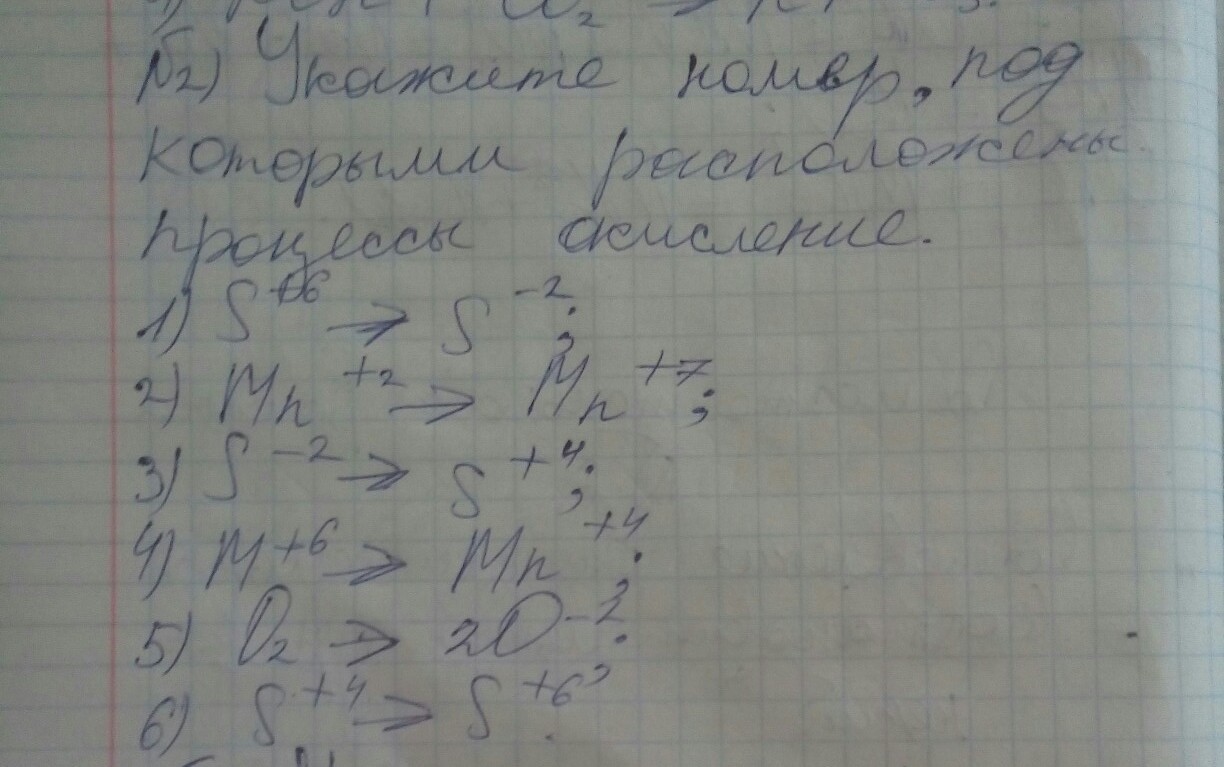 №2) Укажите номер, под
которыми расположены
процессы окисление.
1) S⁺⁶ → S⁻²;
2) Mn⁺² → Mn⁺⁷;
3) S⁻² → S⁺⁴;
4) M⁺⁶ → Mn⁺⁴;
5) O₂ → 2O⁻²;
6) S⁺⁴ → S⁺⁶.